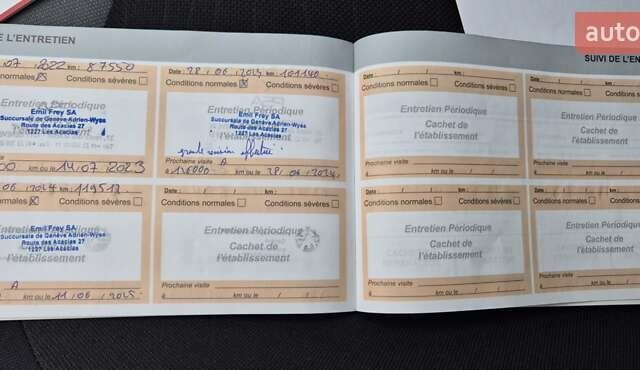 E L'ENTRETIEN
auto
SUIVI DE L'EN
07 2022 km: 87550
normales Conditions sévères
Entretien Périodique
Emil Frey SA
Succursale de Genève Adrien-Wyss
Route des Acacias 27
1227 Les Acacias
km ou le 14.07.2023
Date: 28/06/2023 km: 101140
Conditions normales Conditions sévères
Entretien Périodique
Emil Frey SA
Succursale de Genève Adrien-Wyss
Route des Acacias 27
1227 Les Acacias
l'établissement
grande révision effectuée
Prochaine visite A
à 126000 km ou le 28.06.2024
06 2024 km: 119512
normales Conditions sévères
Emil Frey SA
Succursale de Genève Adrien-Wyss
Route des Acacias 27
1227 Les Acacias
A
km ou le 11.06.2025
Conditions normales Conditions sévères
Entretien Périodique
Cachet de
l'établissement
Prochaine visite
à km ou le / /
Date: / / km:
Conditions normales Conditions sévères
Entretien Périodique
Cachet de
l'établissement
Prochaine visite
à km ou le / /
Date: / / km:
Conditions normales
Entretien Périodique
Cachet de
l'établissement
Prochaine visite
à km ou le
Date: / / km:
Conditions normales Conditions sévères
Entretien Périodique
Cachet de
l'établissement
Prochaine visite
à km ou le / /
Date: / / km:
Conditions normales
Entretien Périodique
Cachet de
l'établissement
Prochaine visite
à km ou le